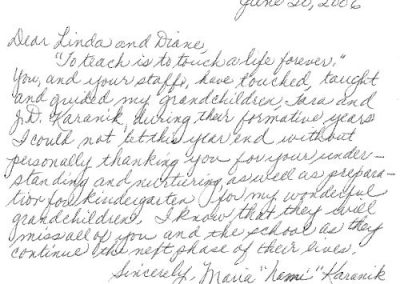 June 20, 2006
Dear Linda and Diane,
"To teach is to touch a life forever."
You, and your staffs, have touched, taught
and guided my grandchildren, Tara and
J.D. Karanik, during their formative years
I could not let this year end without
personally thanking you for your under-
standing and nurturing, as well as prepara-
tion for kindergarten for my wonderful
grandchildren. I know that they will
miss all of you and the school as they
continue the next phase of their lives.
Sincerely, Maria "Nemi" Karanik